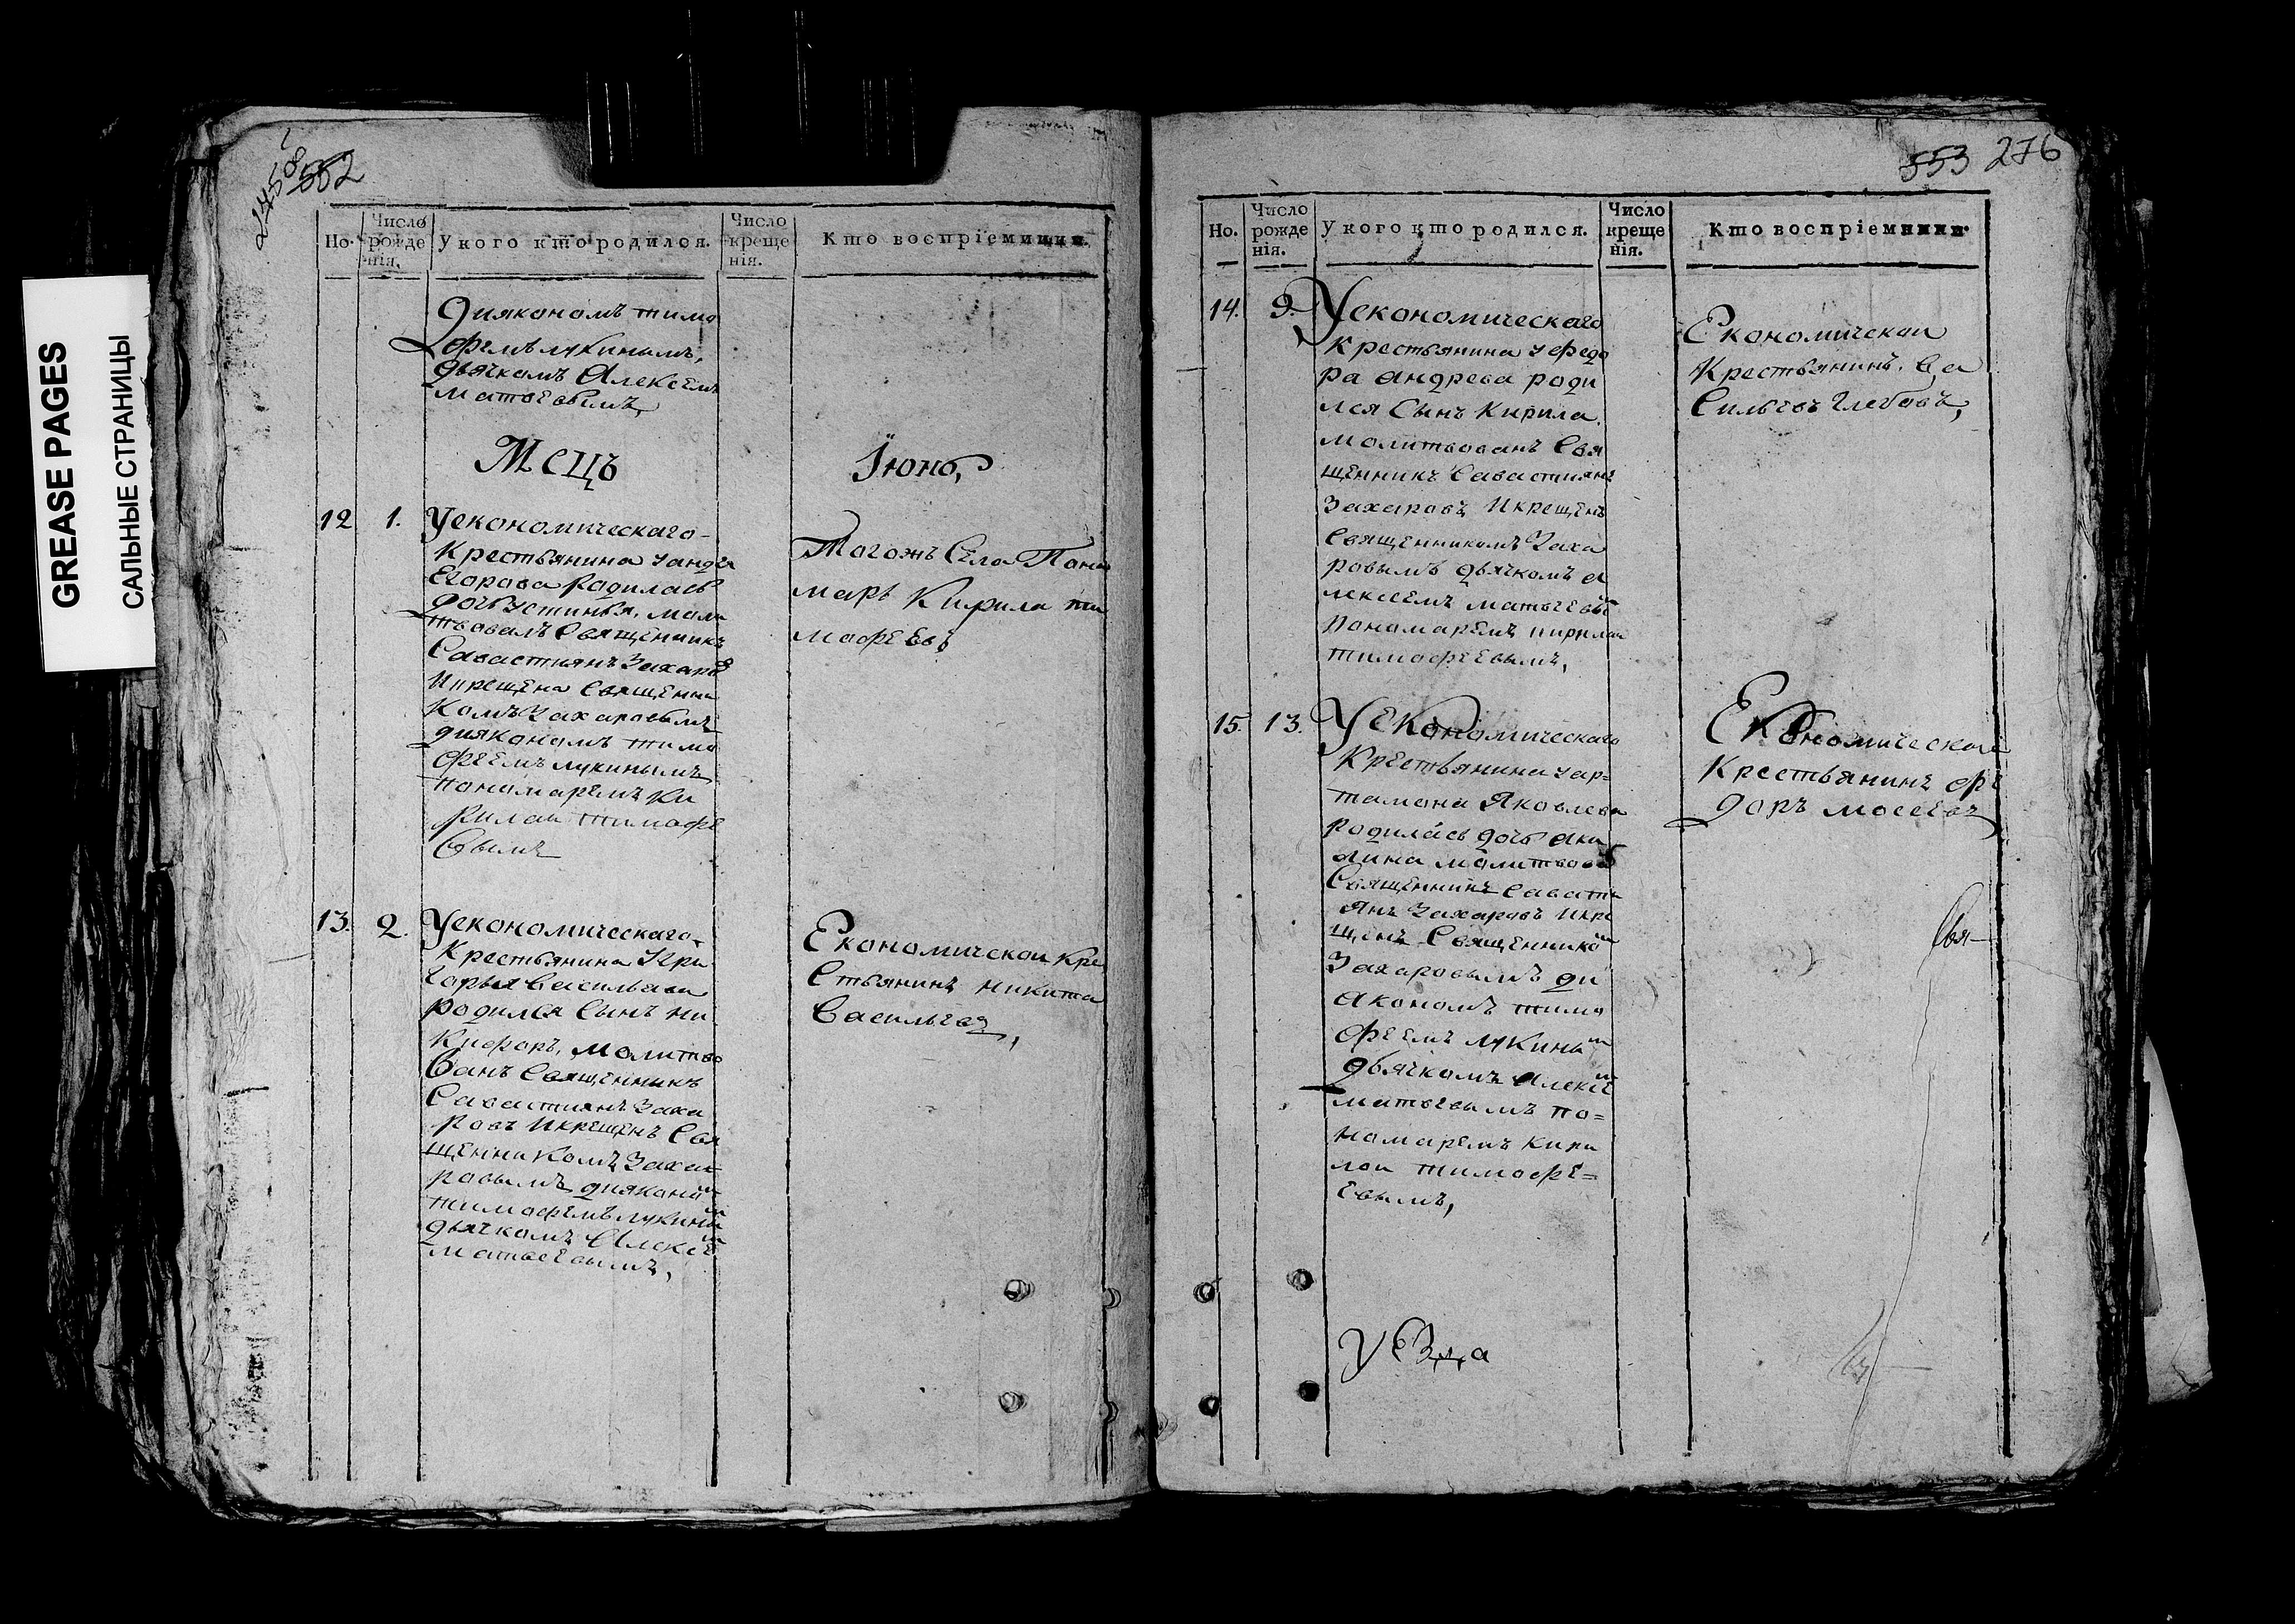 GREASE PAGES
САЛЬНЫЕ СТРАНИЦЫ
552
Но.
Число рожденія.
У кого кто родился.
Число крещенія.
Кто воспріемники.
Дияконамъ тимо
феемъ лукинымъ,
дьячкомъ Алексеем
матвеевымъ,
Мецъ
Іюнь,
12
1.
У економическаго
Крестьянина у андрея
Егорова Радилась
дочь устинья, моли
твовалъ Священникъ
Савастиянъ Захаровъ
И крещена Священни
комъ Захаровымъ
дияконамъ тимо
феемъ лукинымъ
понамаремъ Ки
рилаи тимофе
евымъ
Тогожъ Села Пана
марь Кирила ти
мофеевъ
13.
2.
У економическаго
Крестьянина У гри
горья Васильева
родился Сынъ ни
кифоръ, молитво
ванъ Священникъ
Савастиянъ Заха
ровъ И крещенъ Свя
щенникомъ Заха
ровымъ дияконом
тимофемъ лукиным
дьячкомъ Алексеем
матвеевымъ,
Економическои кре
стьянинъ никита
Васильевъ,
553 276
Но.
Число рожденія.
У кого кто родился.
Число крещенія.
Кто воспріемники.
14.
9.
У економическаго
Крестьянина у федо
ра андреева роди
лся Сынъ Кирила
молитвованъ Свя
щенникъ Савастиянъ
Захаровъ И крещенъ
Священникомъ Заха
ровымъ дьячкомъ а
лексеемъ матвеевым
понамаремъ кирилаи
тимофеевымъ,
Економическои
Крестьянинъ Ва
сильевъ Глебовъ,
15.
13.
У Економическаго
Крестьянина у ар=
тамона Яковлева
родилась дочь аки
лина молитвова
Священникъ Савасти
янъ Захаровъ И кре
щенъ Священником
Захаровымъ ди
акономъ тимо
феемъ лукиным
дьячкомъ Алексеем
матвевымъ по=
намаремъ кири
лои тимофе=
евымъ,
Економическои
Крестьянинъ фе
доръ мосеевъ
Свя-
уезда